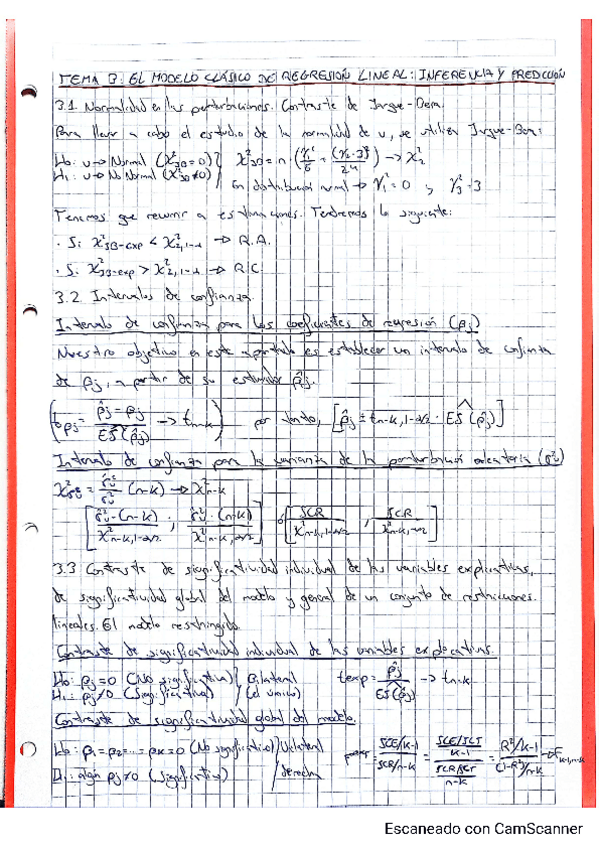 TEMA 3: EL MODELO CLÁSICO DE REGRESIÓN LINEAL: INFERENCIA Y PREDICCIÓN
3.1 Normalidad en las perturbaciones. Contraste de Jarque-Bera.
Para llevar a cabo el estudio de la normalidad de u, se utiliza Jarque-Bera:
H₀: u → Normal (X²JB = 0)
H₁: u → No Normal (X²JB ≠ 0)
X²JB = n · (γ₁²/6 + (γ₂-3)²/24) → X²₂
En distribución normal →
Tenemos que recurrir a estimaciones. Tendremos lo siguiente:
· Si X²JB-exp < X²₂,₁₋α → R.A.
· Si X²JB-exp > X²₂,₁₋α → R.C.
3.2 Intervalos de confianza.
Intervalo de confianza para los coeficientes de regresión (βj)
Nuestro objetivo en este apartado es establecer un intervalo de confianza
de βj, a partir de su estimador β̂j.
βj = β̂j - βj / ES(β̂j) → tn-k) por tanto, [β̂j ± tn-k,1-α/2 · ES(β̂j)]
Intervalo de confianza para la varianza de la perturbación aleatoria (σ²u)
(n-k) → X²n-k
[σ̂²u·(n-k) / X²n-k,1-α/2 ; σ̂²u·(n-k) / X²n-k,α/2] ó [SCR / X²n-k,1-α/2 ; SCR / X²n-k,α/2]
3.3 Contraste de significatividad individual de las variables explicativas,
de significatividad global del modelo y general de un conjunto de restricciones
lineales. El modelo restringido.
Contraste de significatividad individual de las variables explicativas.
H₀: βj = 0 (No significativa)
H₁: βj ≠ 0 (Significativa)
Bilateral
(el único)
texp = β̂j / ES(β̂j) → tn-k
Contraste de significatividad global del modelo.
H₀: β₁ = β₂ = ... = βk = 0 (No significativo)
H₁: algún βj ≠ 0 (Significativo)
Unilateral
derecha
SCE/k-1 / SCR/n-k = SCE/SCT / k-1 / SCR/SCT / n-k = R²/k-1 / (1-R²)/n-k → Fk-1,n-k
Escaneado con CamScanner